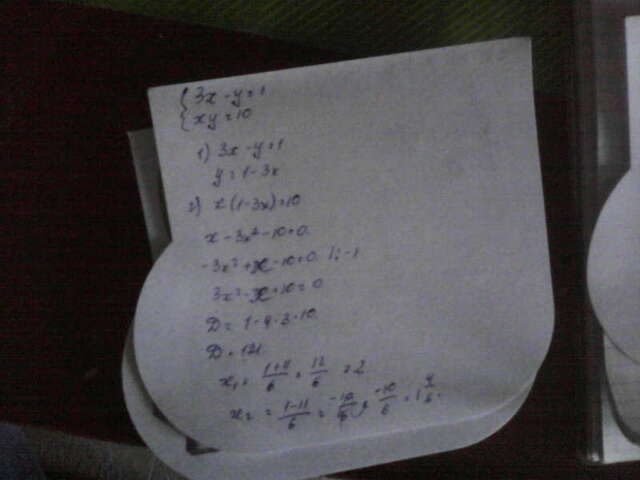 { 3x - y = 1
xy = 10
1) 3x - y = 1
y = 1 - 3x
2) x(1 - 3x) = 10
x - 3x² - 10 = 0
-3x² + x - 10 = 0 | : -1
3x² - x + 10 = 0
D = 1 - 4 · 3 · 10
D = 121
x₁ = (1+11)/6 = 12/6 = 2
x₂ = = (1-11)/6 =